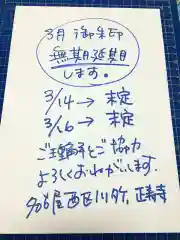 3月 御朱印
無期延期
します。
3/14→ 未定
3/16→ 未定
ご理解とご協力
よろしくおねがいします.
名古屋西区 正善寺